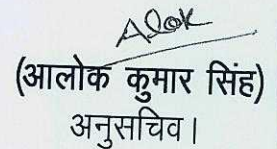 Alok
(आलोक कुमार सिंह)
अनुसचिव।